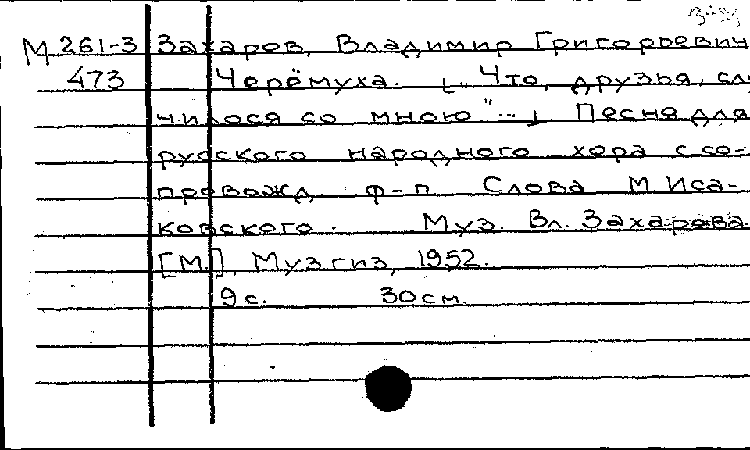 М 261-3 Захаров, Владимир Григорьевич
473 Черёмуха. [„Что, друзья, слу-
чилося со мною"...] Песня для
русского народного хора с со-
провожд. ф-п. Слова М. Иса-
ковского. Муз. Вл. Захарова.
[М.], Музгиз, 1952.
9 с. 30 см.